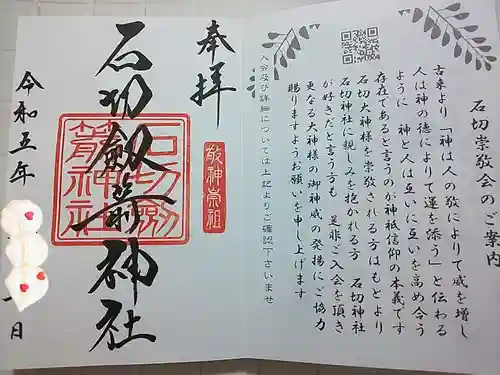 石切崇敬会のご案内
古来より「神は人の敬によりて威を増し
人は神の徳によりて運を添う」と伝わる
ように 神と人は互いに互いを高め合う
存在であると言うのが神祇信仰の本義です
石切大神様を崇敬される方はもとより
石切神社に親しみを抱かれる方 石切神社
が好きだと言う方も 是非ご入会を頂き
更なる大神様の御神威の発揚にご協力
賜りますようお願いを申し上げます
入会及び詳細については上記よりご確認下さいませ
奉拝
敬神崇祖
石切劔箭神社
石切劔箭神社
令和五年
日